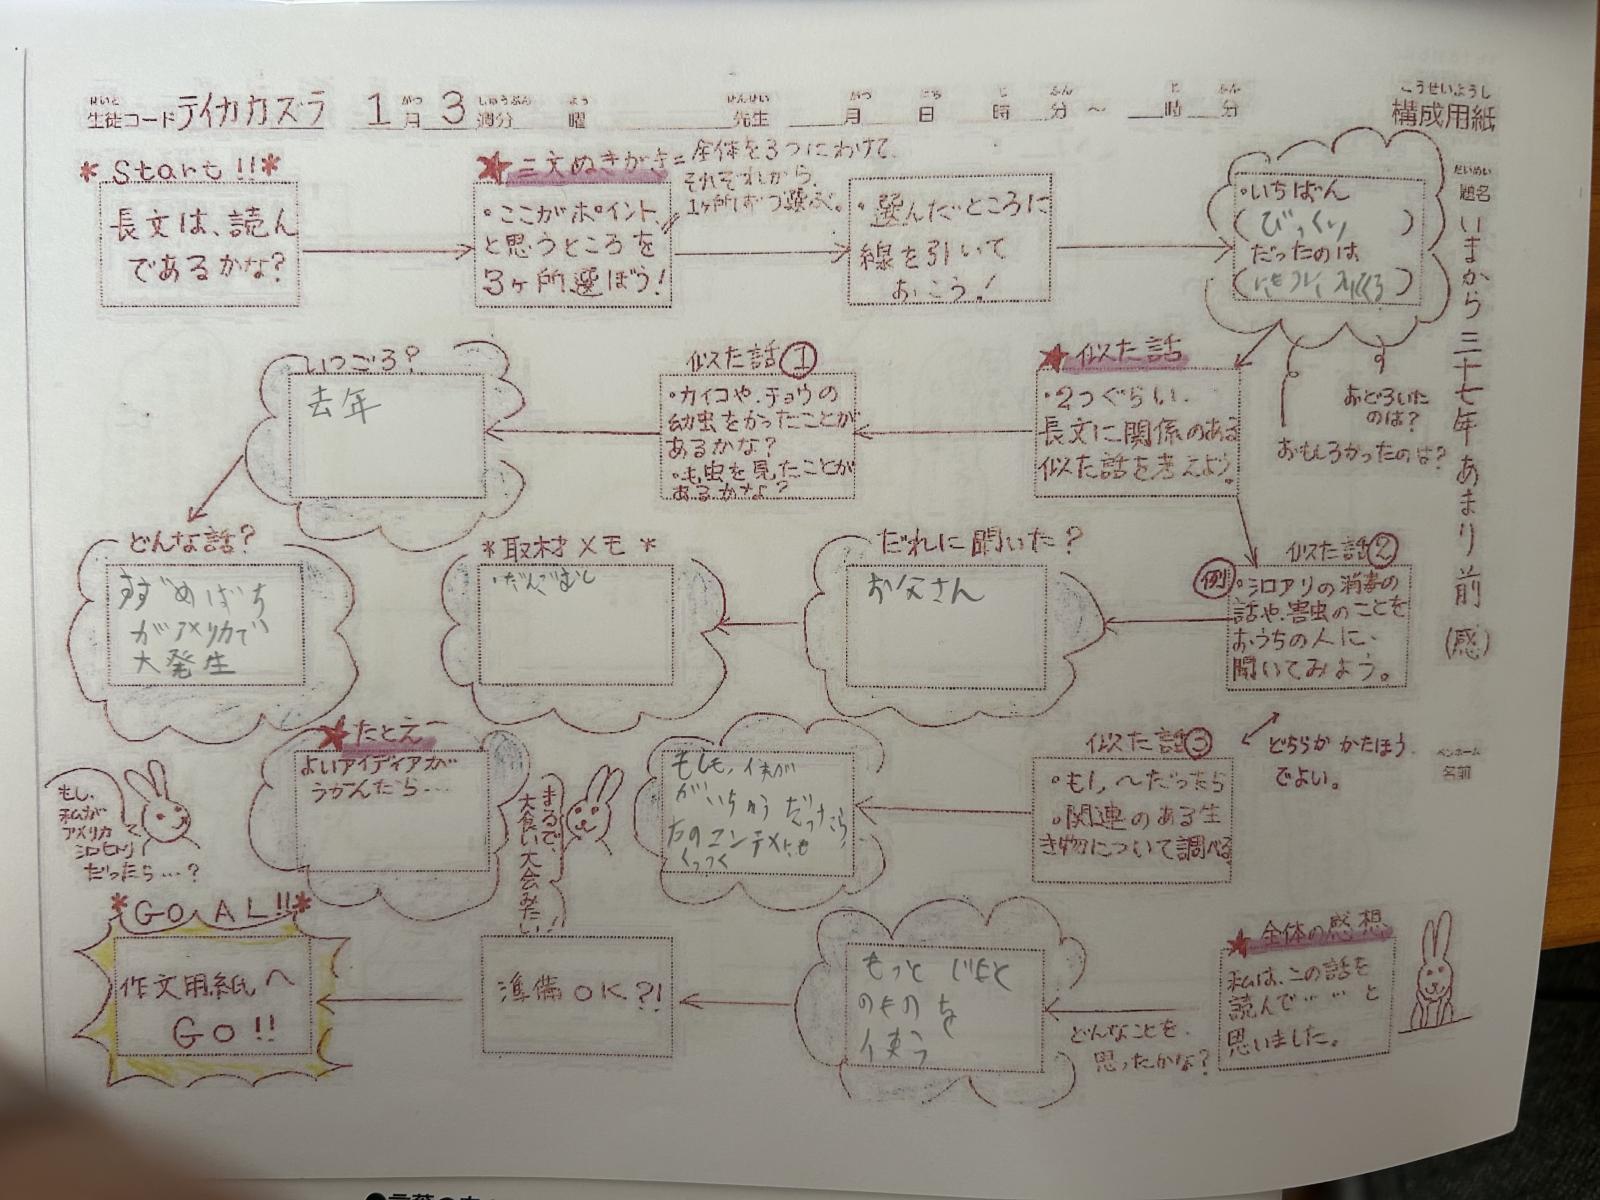 せいと がつ しゅうぶん よう せんせい がつ にち じ ふん じ ふん
生徒コード テイカカズラ 1月 3週分 曜 先生 月 日 時 分 ～ 時 分
こうせいようし
構成用紙
だいめい
題名
いまから三十七年あまり前(感)
ペンネーム
名前
*Start!!*
長文は、読ん
であるかな?
★三文ぬきがき=全体を3つにわけて、
それぞれから、
1ヶ所ずつ選ぶ。
・ここがポイント、
と思うところを
3ヶ所選ぼう!
・選んだところに
線を引いて
おこう!
・いちばん
(びっくり)
だったのは
おどろいた
のは?
おもしろかったのは?
★似た話
・2つぐらい、
長文に関係のある
似た話を考えよう。
似た話①
・カイコや、チョウの
幼虫をかったことが
あるかな?
・毛虫を見たことが
あるかな?
いつごろ?
去年
どんな話?
すずめばち
がアメリカで
大発生
似た話②
例
・シロアリの消毒の
話や、害虫のことを
おうちの人に、
聞いてみよう。
だれに聞いた?
お父さん
*取材メモ*
・だんごむし
どちらか かたほう
でよい。
似た話③
・もし、～だったら
・関連のある生
き物について調べる
もしも、
がいちゅうだったら
くっつく
まるで、
大食い大会みたい!
★たとえ
よいアイディアが
うかんだら…
もし、
私が
アメリカ
シロヒトリ
だったら…?
★全体の感想
私は、この話を
読んで……と
思いました。
どんなことを、
思ったかな?
もっと
のものを
使う
準備OK?!
*GOAL!!*
作文用紙へ
GO!!